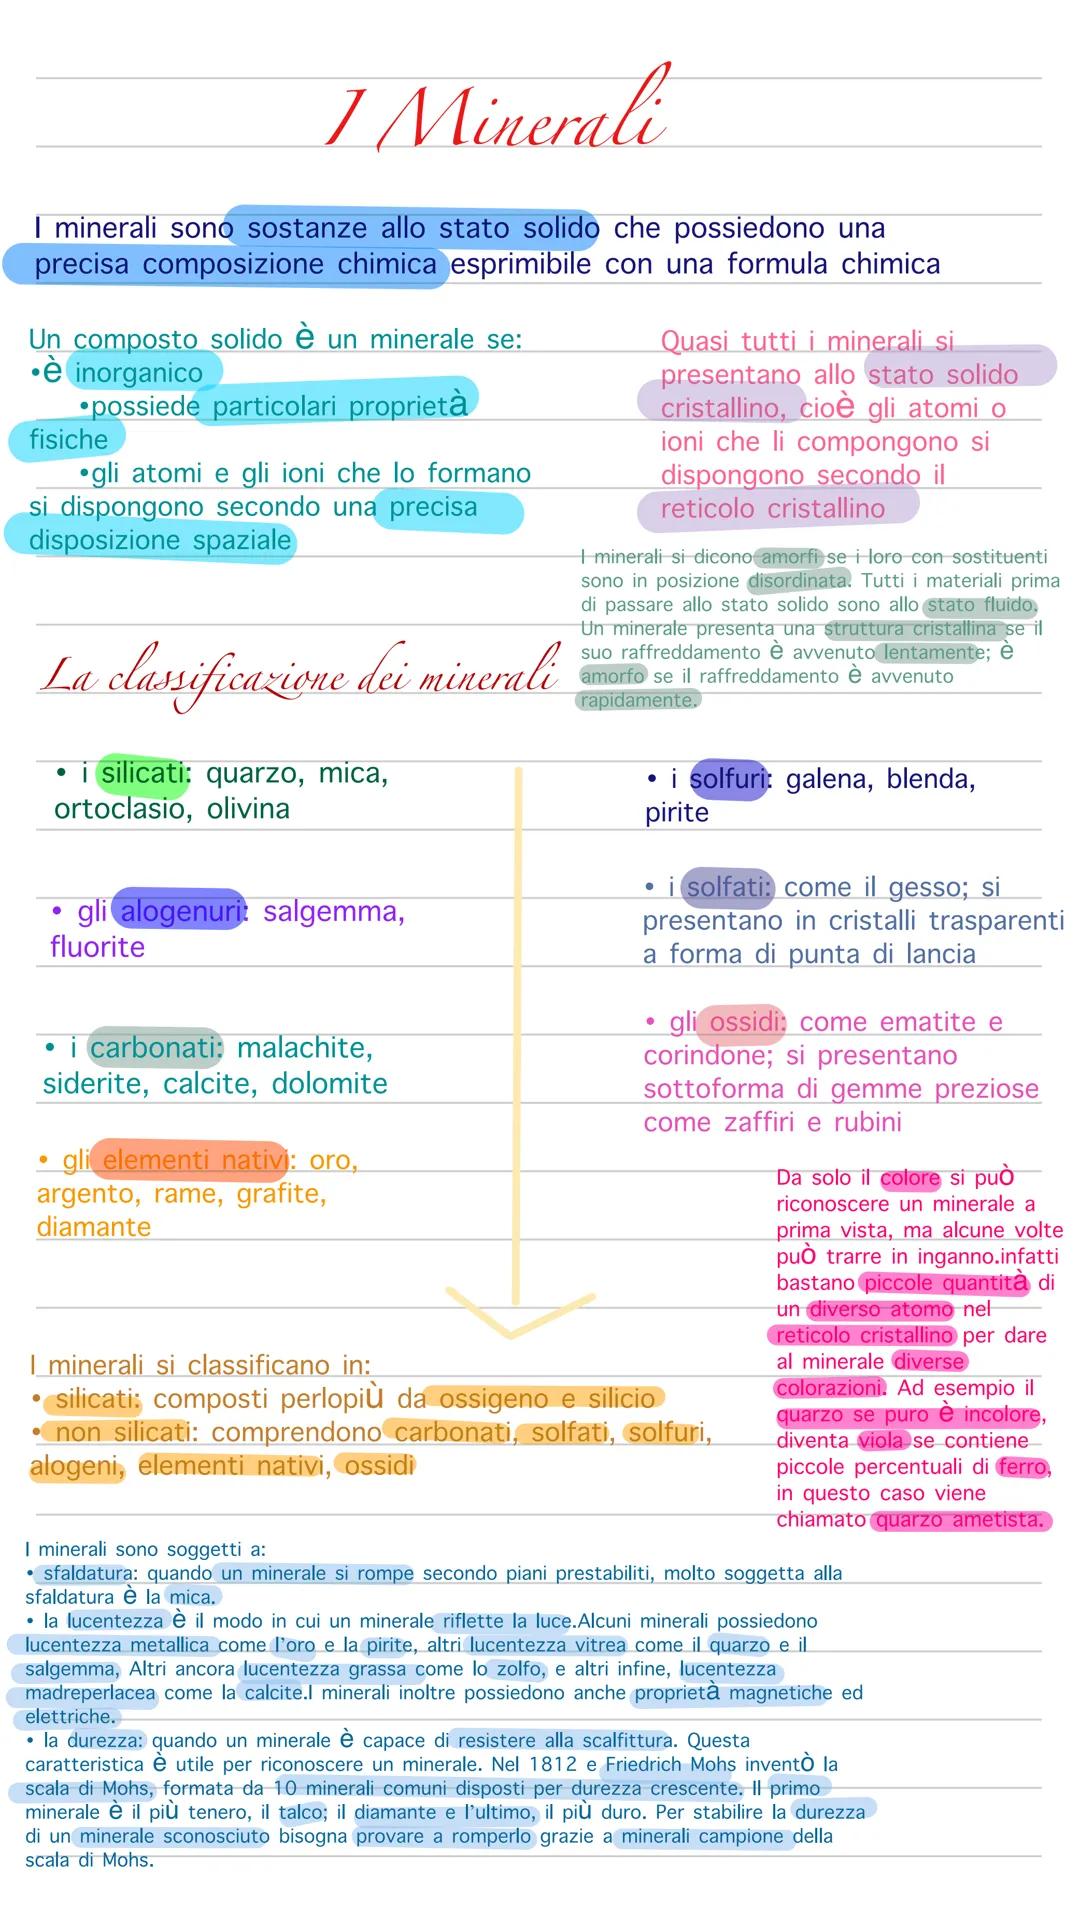 I Minerali
I minerali sono sostanze allo stato solido che possiedono una
precisa composizione chimica esprimibile con una formula chimica
Un composto solido è un minerale se:
•è inorganico
•possiede particolari proprietà
fisiche
•gli atomi e gli ioni che lo formano
si dispongono secondo una precisa
disposizione spaziale
Quasi tutti i minerali si
presentano allo stato solido
cristallino, cioè gli atomi o
ioni che li compongono si
dispongono secondo il
reticolo cristallino
I minerali si dicono amorfi se i loro con sostituenti
sono in posizione disordinata. Tutti i materiali prima
di passare allo stato solido sono allo stato fluido.
Un minerale presenta una struttura cristallina se il
suo raffreddamento è avvenuto lentamente; è
amorfo se il raffreddamento è avvenuto
rapidamente.
La classificazione dei minerali
• i silicati: quarzo, mica,
ortoclasio, olivina
• gli alogenuri: salgemma,
fluorite
• i carbonati: malachite,
siderite, calcite, dolomite
• gli elementi nativi: oro,
argento, rame, grafite,
diamante
• i solfuri: galena, blenda,
pirite
• i solfati: come il gesso; si
presentano in cristalli trasparenti
a forma di punta di lancia
• gli ossidi: come ematite e
corindone; si presentano
sottoforma di gemme preziose
come zaffiri e rubini
Da solo il colore si può
riconoscere un minerale a
prima vista, ma alcune volte
può trarre in inganno.infatti
bastano piccole quantità di
un diverso atomo nel
reticolo cristallino per dare
al minerale diverse
colorazioni. Ad esempio il
quarzo se puro è incolore,
diventa viola se contiene
piccole percentuali di ferro,
in questo caso viene
chiamato quarzo ametista.
I minerali si classificano in:
• silicati: composti perlopiù da ossigeno e silicio
• non silicati: comprendono carbonati, solfati, solfuri,
alogeni, elementi nativi, ossidi
I minerali sono soggetti a:
• sfaldatura: quando un minerale si rompe secondo piani prestabiliti, molto soggetta alla
sfaldatura è la mica.
• la lucentezza è il modo in cui un minerale riflette la luce.Alcuni minerali possiedono
lucentezza metallica come l'oro e la pirite, altri lucentezza vitrea come il quarzo e il
salgemma, Altri ancora lucentezza grassa come lo zolfo, e altri infine, lucentezza
madreperlacea come la calcite.I minerali inoltre possiedono anche proprietà magnetiche ed
elettriche.
• la durezza: quando un minerale è capace di resistere alla scalfittura. Questa
caratteristica è utile per riconoscere un minerale. Nel 1812 e Friedrich Mohs inventò la
scala di Mohs, formata da 10 minerali comuni disposti per durezza crescente. Il primo
minerale è il più tenero, il talco; il diamante e l'ultimo, il più duro. Per stabilire la durezza
di un minerale sconosciuto bisogna provare a romperlo grazie a minerali campione della
scala di Mohs.